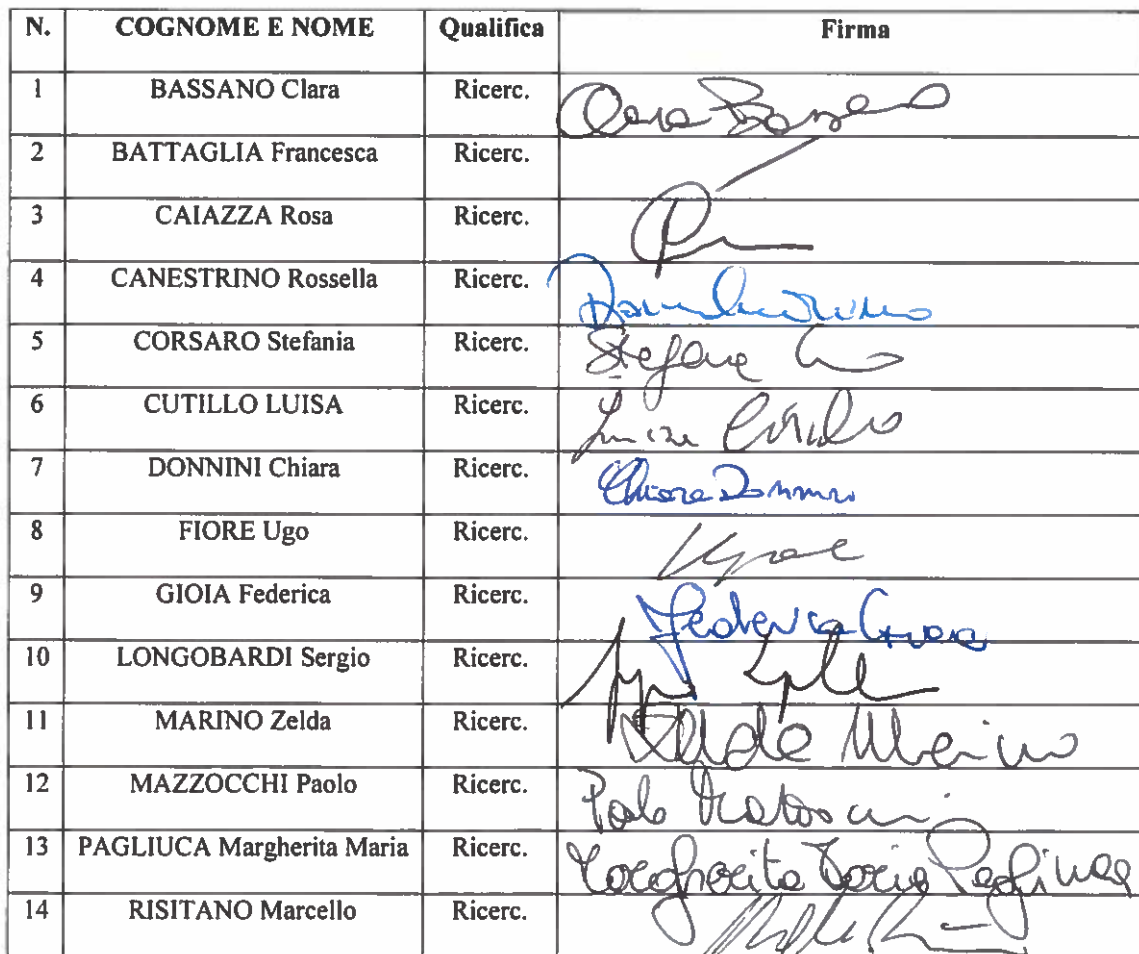 N. COGNOME E NOME Qualifica Firma
1 BASSANO Clara Ricerc. Clara Bassano
2 BATTAGLIA Francesca Ricerc.
3 CAIAZZA Rosa Ricerc.
4 CANESTRINO Rossella Ricerc.
5 CORSARO Stefania Ricerc.
6 CUTILLO LUISA Ricerc. Luisa Cutillo
7 DONNINI Chiara Ricerc. Chiara Donnini
8 FIORE Ugo Ricerc.
9 GIOIA Federica Ricerc. Federica Gioia
10 LONGOBARDI Sergio Ricerc.
11 MARINO Zelda Ricerc. Zelda Marino
12 MAZZOCCHI Paolo Ricerc. Paolo Mazzocchi
13 PAGLIUCA Margherita Maria Ricerc. Margherita Maria Pagliuca
14 RISITANO Marcello Ricerc.